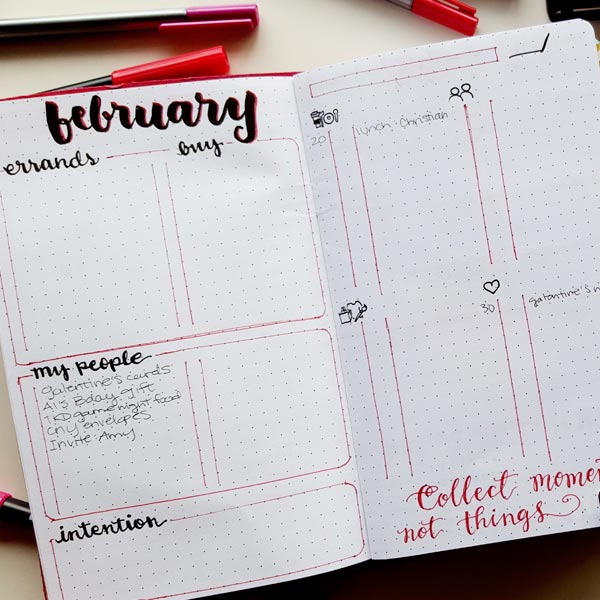 february
errands
buy
my people
galentine's cards
Al's Bday gift
TKD game night food
CNY envelopes
Invite Amy
intention
20
Lunch, Christian
30
galentine's ni
Collect momen
not things